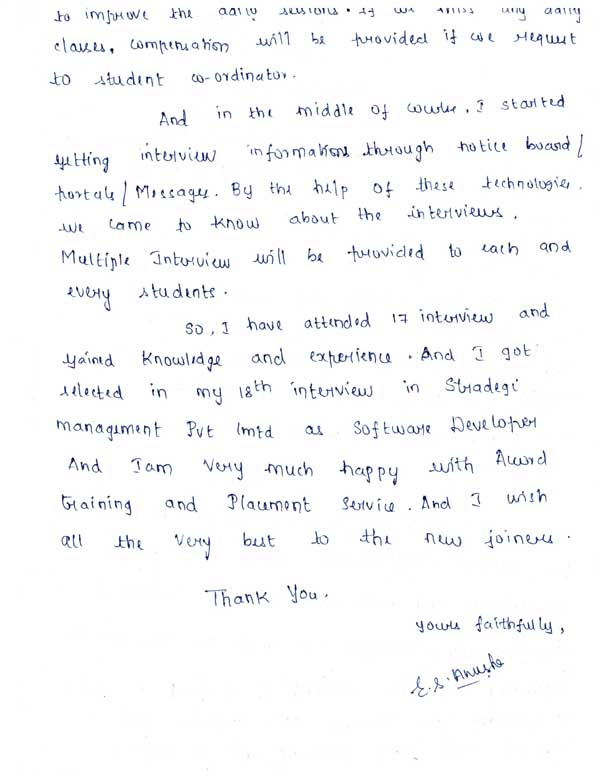 to improve the daily sessions. If we miss any daily
classes, compensation will be provided if we request
to student co-ordinator.
And in the middle of course, I started
getting interview informations through notice board/
portals/Messages. By the help of these technologies.
we came to know about the interviews.
Multiple Interview will be provided to each and
every students.
So, I have attended 17 interview and
gained Knowledge and experience. And I got
selected in my 18th interview in Stradegi
management Pvt lmtd as Software Developer
And Iam Very much happy with
training and Placement Service. And I wish
all the Very best to the new joiners.
Thank You.
yours faithfully,
E.S. Anusha